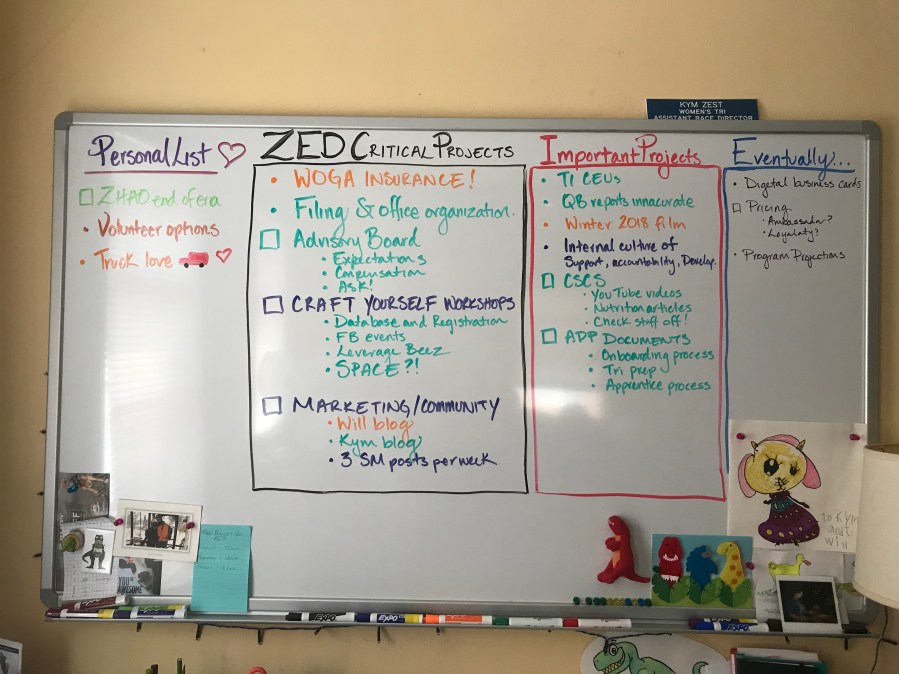 KYM ZEST
WOMEN'S TRI
ASSISTANT RACE DIRECTOR
Personal List
ZHAO end of era
• Volunteer options
• Truck love
ZED Critical Projects
• WOGA INSURANCE!
• Filing & office organization.
Advisory Board
• Expectations
• Compensation
• Ask!
CRAFT YOURSELF WORKSHOPS
• Database and Registration
• FB events
• Leverage Beez
• SPACE?!
MARKETING/COMMUNITY
• Will blog
• Kym blog
• 3 SM posts per week
Important Projects
• TI CEUs
• QB reports innacurate
• Winter 2018 film
• Internal culture of
Support, accountability, Develop.
CSCS
• YouTube videos
• Nutrition articles
• Check stuff off!
ADP DOCUMENTS
• Onboarding process
• Tri prep
• Apprentice process
Eventually...
• Digetal business cards
Pricing
• Ambassador?
• Loyalaty?
• Program Projections
to Kym
and
Win
YOU'RE
AWESOME
EXPO
EXPO
EXPO
EXPO
EXPO